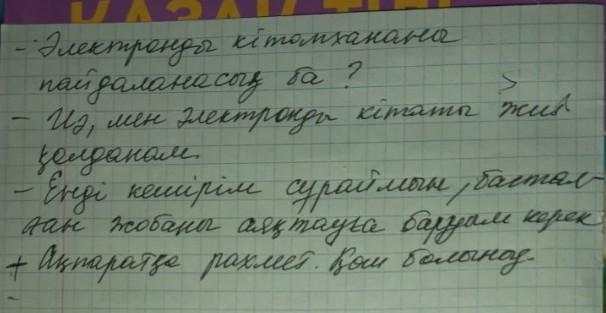 ҚАЗАҚ ТІЛІ
- Электронды кітапханана
пайдаланасың ба?
- Иә, мен электронды кітапты жиі
қолданам.
- Енді кешірім сұраймын, бастал-
ған жобаны аяқтауға баруам керек
+ Ақпаратқа рахмет. Қош болыңыз.
-